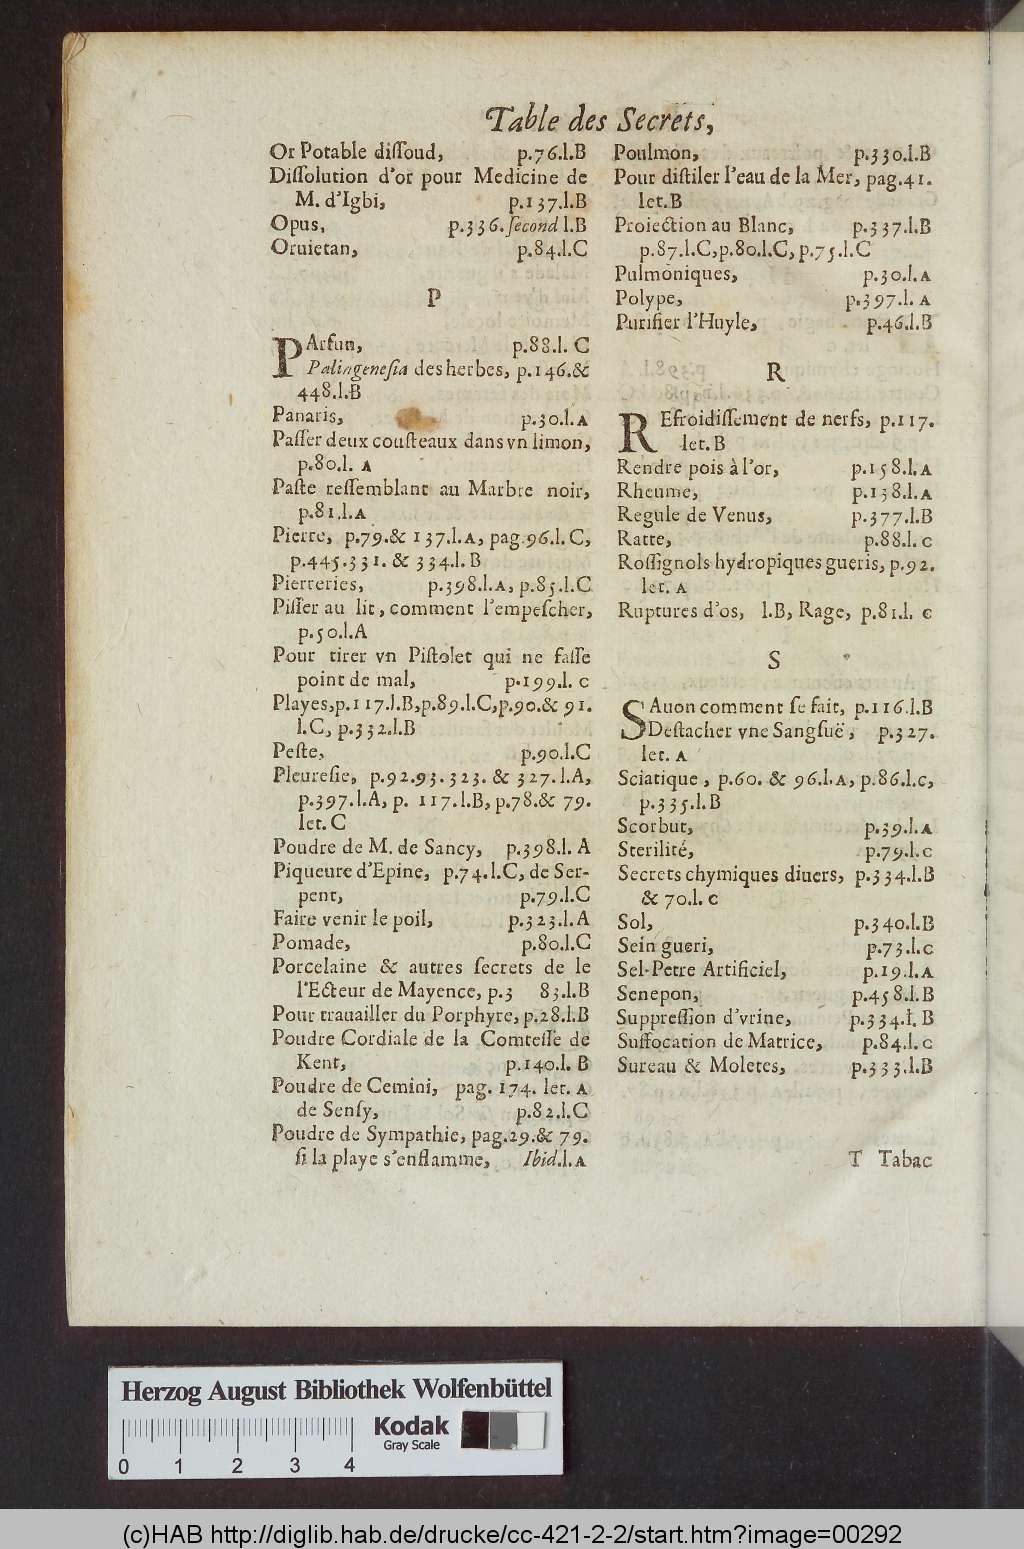 Table des Secrets,
Or Potable dissoud, p.76.l.B
Dissolution d'or pour Medicine de
M. d'Igbi, p.137.l.B
Opus, p.336.second l.B
Oruietan, p.84.l.C
P
PArfun, p.88.l. C
Palingenesia des herbes, p.146.&
448.l.B
Panaris, p.30.l.A
Passer deux cousteaux dans vn limon,
p.80.l. A
Paste ressemblant au Marbre noir,
p.81.l.A
Pierre, p.79.& 137.l.A, pag.96.l.C,
p.445.331. & 334.l.B
Pierreries, p.398.l.A, p.85.l.C
Pisser au lit, comment l'empescher,
p.50.l.A
Pour tirer vn Pistolet qui ne fasse
point de mal, p.199.l. c
Playes,p.117.l.B,p.89.l.C,p.90.& 91.
l.C, p.332.l.B
Peste, p.90.l.C
Pleuresie, p.92.93.323. & 327.l.A,
p.397.l.A, p. 117.l.B, p.78.& 79.
let.C
Poudre de M. de Sancy, p.398.l. A
Piqueure d'Epine, p.74.l.C, de Ser-
pent, p.79.l.C
Faire venir le poil, p.323.l.A
Pomade, p.80.l.C
Porcelaine & autres secrets de le
l'Ecteur de Mayence, p.3 83.l.B
Pour trauailler du Porphyre, p.28.l.B
Poudre Cordiale de la Comtesse de
Kent, p.140.l. B
Poudre de Cemini, pag. 174. let. A
de Sensy, p.82.l.C
Poudre de Sympathie, pag.29.& 79.
si la playe s'enflamme, Ibid.l.A
Poulmon, p.330.l.B
Pour distiler l'eau de la Mer, pag.41.
let.B
Proiection au Blanc, p.337.l.B
p.87.l.C,p.80.l.C, p.75.l.C
Pulmoniques, p.30.l.A
Polype, p.397.l. A
Purifier l'Huyle, p.46.l.B
R
REfroidissement de nerfs, p.117.
let.B
Rendre pois à l'or, p.158.l.A
Rheume, p.138.l.A
Regule de Venus, p.377.l.B
Ratte, p.88.l. c
Rossignols hydropiques gueris, p.92.
let. A
Ruptures d'os, l.B, Rage, p.81.l. c
S
SAuon comment se fait, p.116.l.B
Destacher vne Sangsuë, p.327.
let. A
Sciatique, p.60. & 96.l.A, p.86.l.c,
p.335.l.B
Scorbut, p.39.l.A
Sterilité, p.79.l.c
Secrets chymiques diuers, p.334.l.B
& 70.l. c
Sol, p.340.l.B
Sein gueri, p.73.l.c
Sel-Petre Artificiel, p.19.l.A
Senepon, p.458.l.B
Suppression d'vrine, p.334.l. B
Suffocation de Matrice, p.84.l.c
Sureau & Moletes, p.333.l.B
T Tabac
Herzog August Bibliothek Wolfenbüttel
Kodak
Gray Scale
0 1 2 3 4
(c)HAB http://diglib.hab.de/drucke/cc-421-2-2/start.htm?image=00292